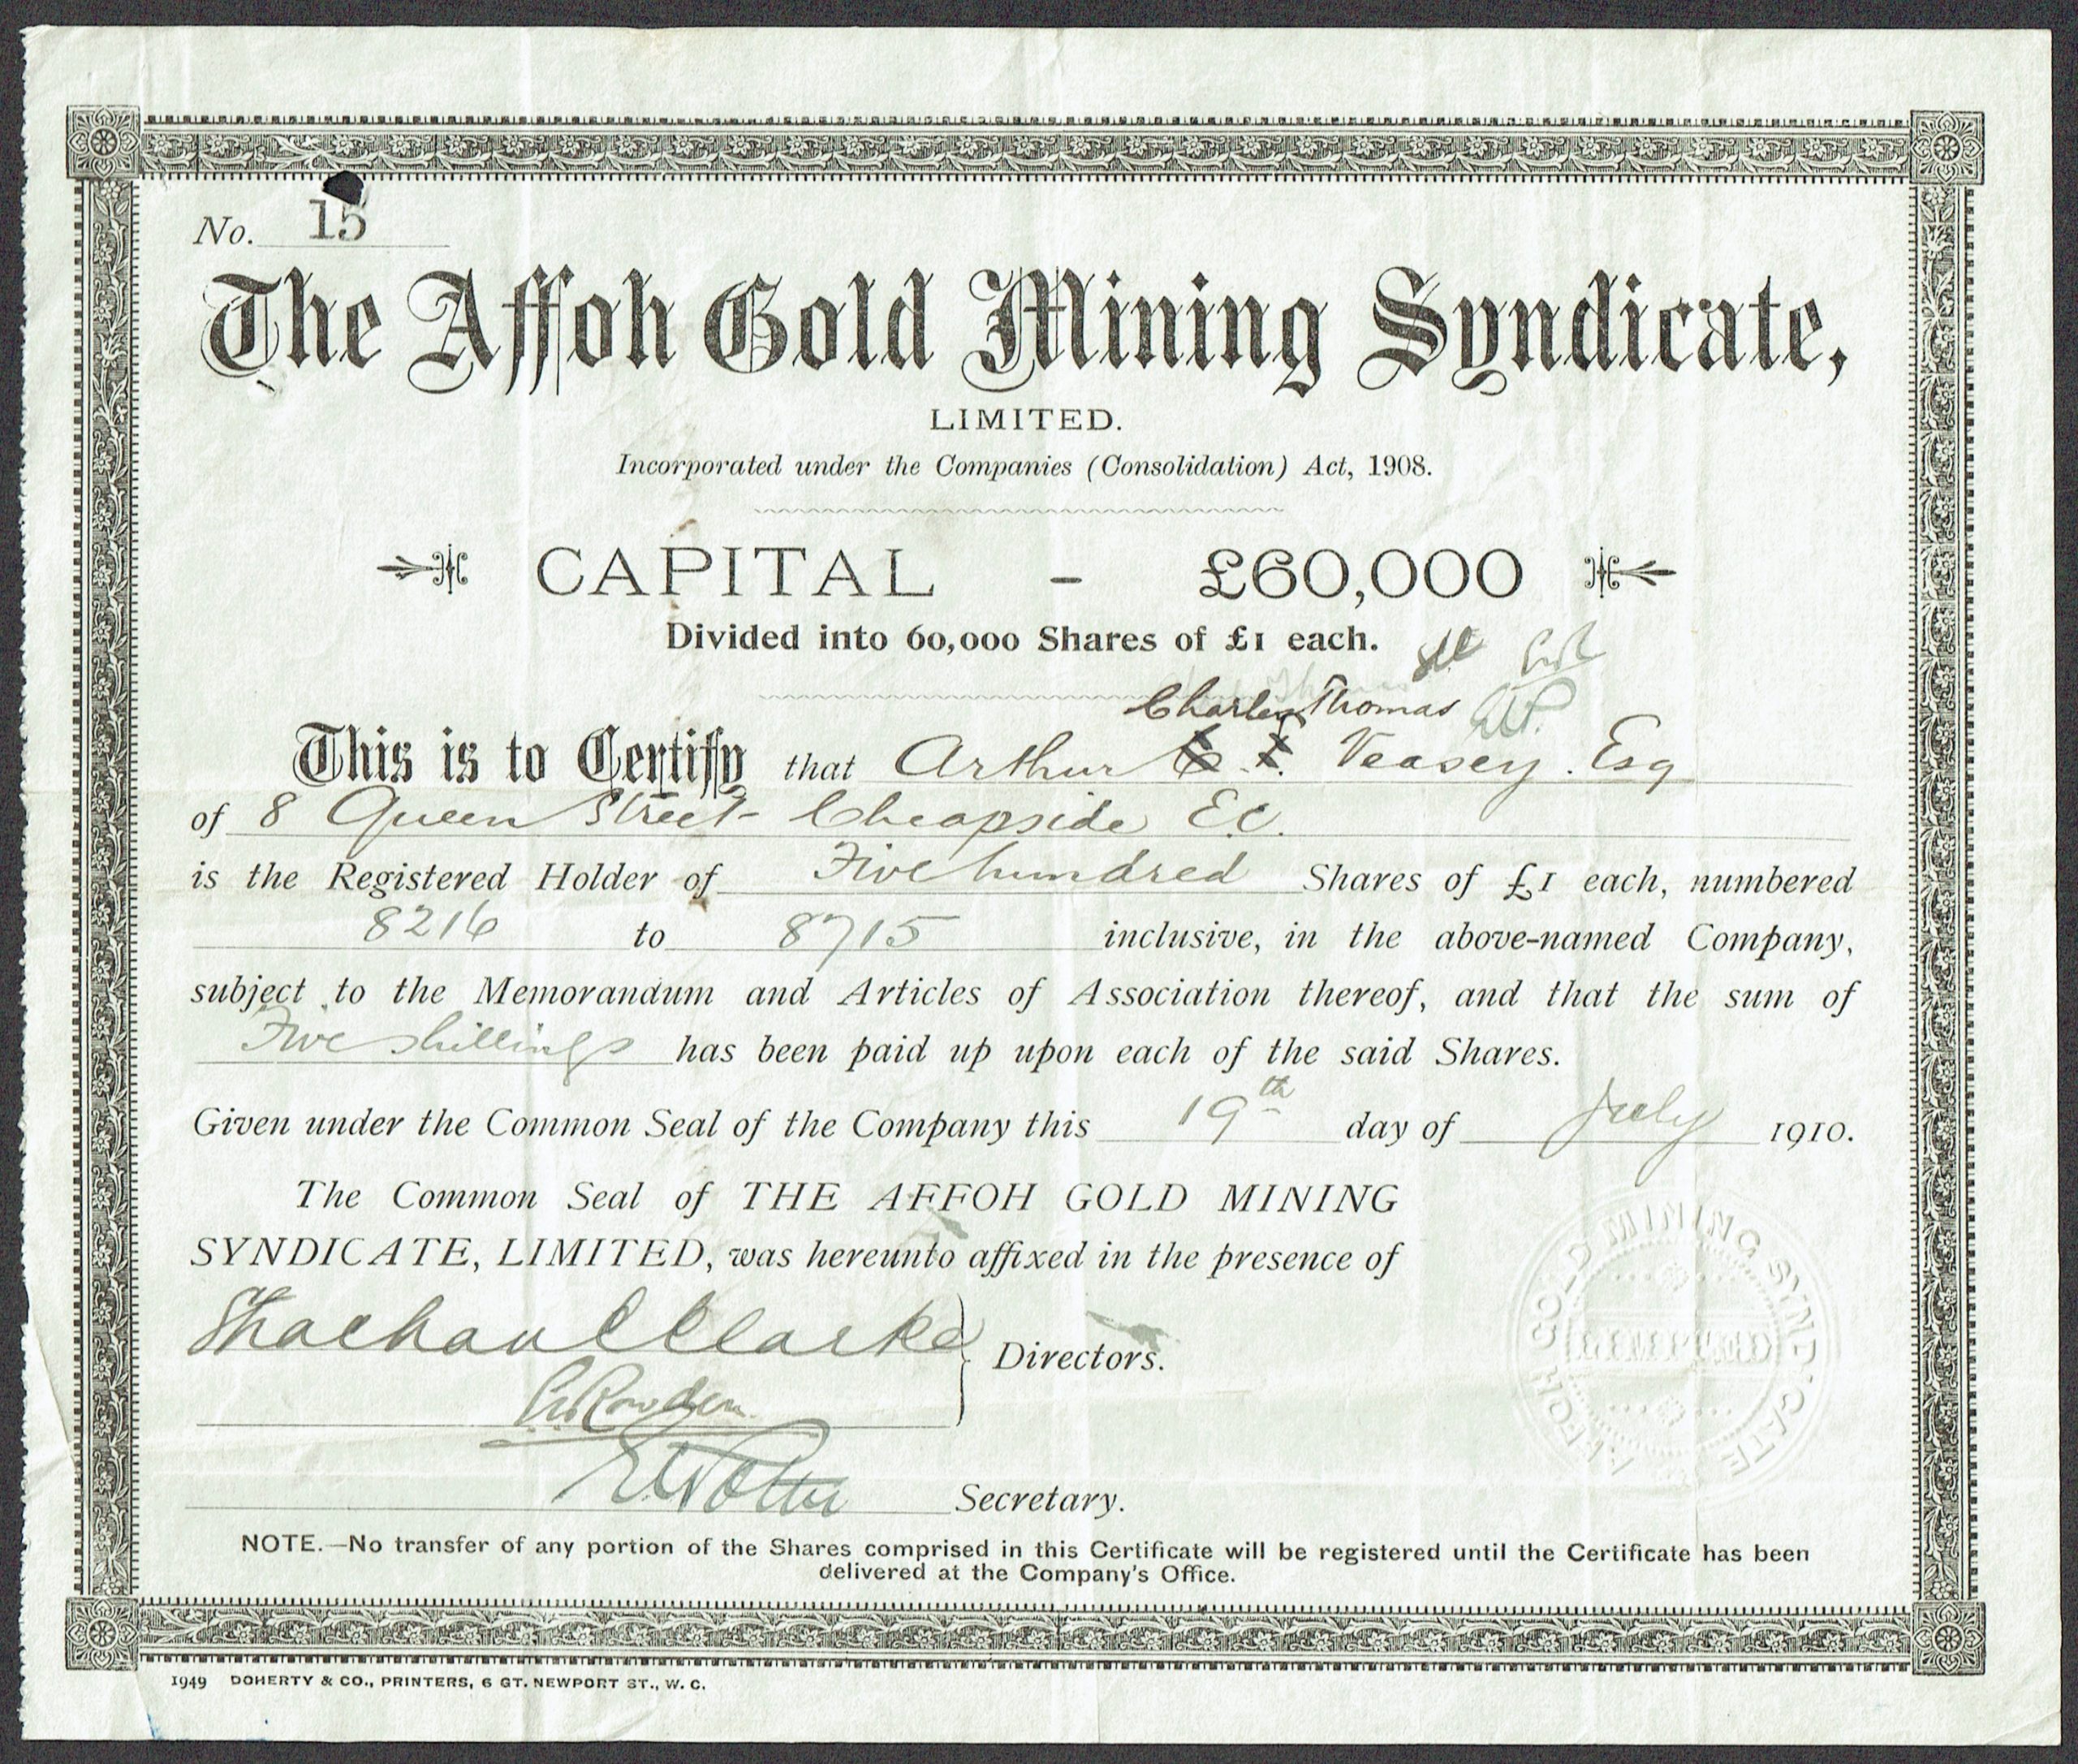 No. 15
The Affoh Gold Mining Syndicate,
LIMITED.
Incorporated under the Companies (Consolidation) Act, 1908.
CAPITAL - £60,000
Divided into 60,000 Shares of £1 each.
Charles Thomas
This is to Certify that Arthur C. T. Veasey. Esq
of 8 Queen Street Cheapside E.C.
is the Registered Holder of Five hundred Shares of £1 each, numbered
8216 to 8715 inclusive, in the above-named Company,
subject to the Memorandum and Articles of Association thereof, and that the sum of
Five shillings has been paid up upon each of the said Shares.
Given under the Common Seal of the Company this 19th day of July 1910.
The Common Seal of THE AFFOH GOLD MINING
SYNDICATE, LIMITED, was hereunto affixed in the presence of
Clarke
Directors.
Secretary.
AFFOH GOLD MINING SYNDICATE
LIMITED
NOTE.—No transfer of any portion of the Shares comprised in this Certificate will be registered until the Certificate has been
delivered at the Company's Office.
1949 DOHERTY & CO., PRINTERS, 6 GT. NEWPORT ST., W. C.